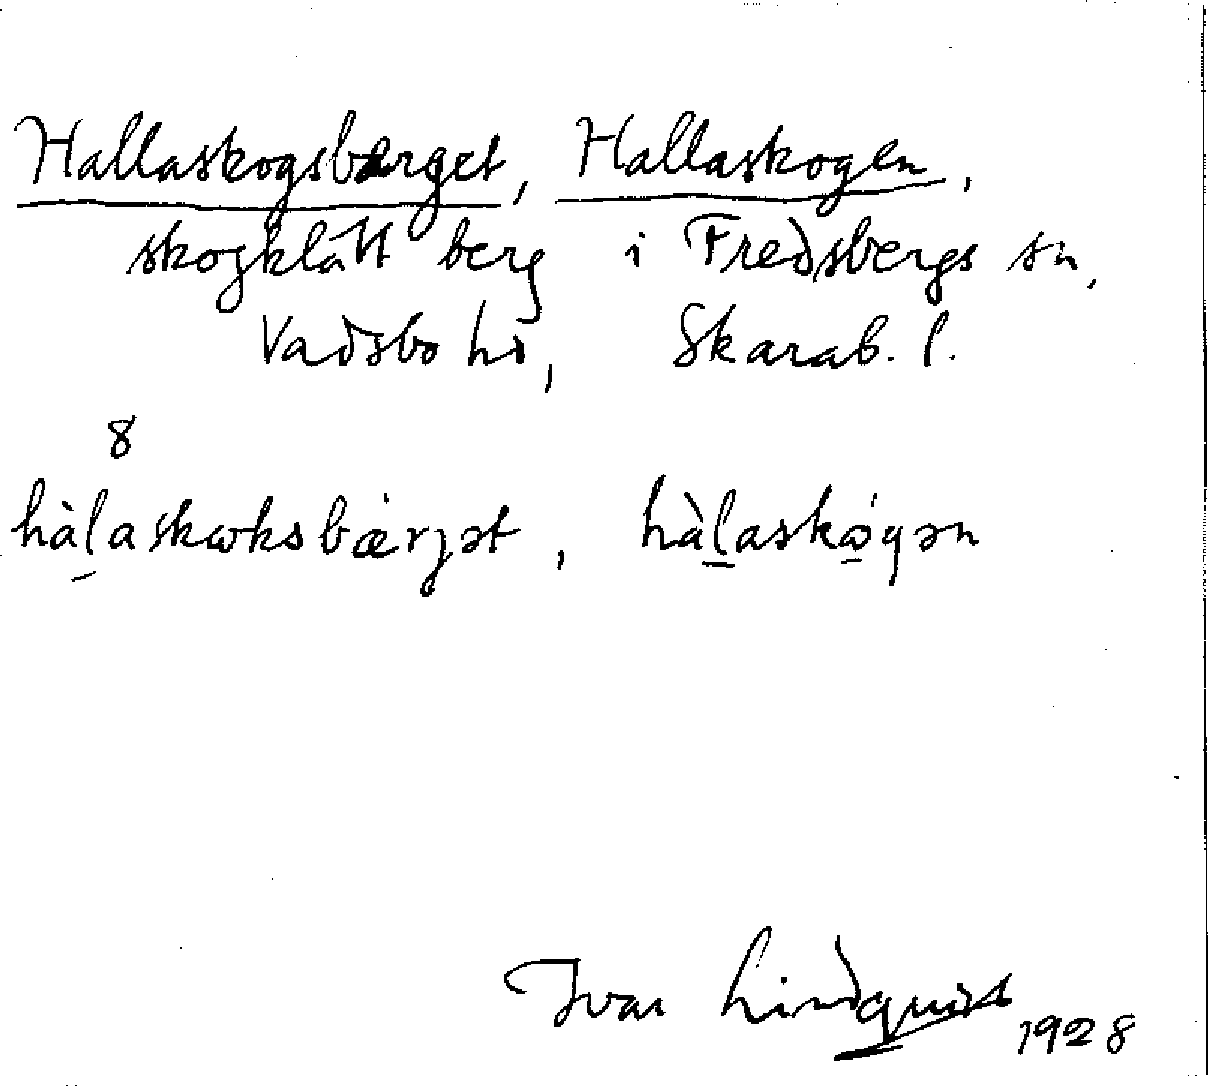 Hallaskogsbärget, Hallaskogen,
skogklätt berg i Fredsbergs sn,
Vadsbo hd, Skarab. l.
8
hàlaskωksbǽrȷət, hàlaskǿgən
Ivar Lindquist 1928